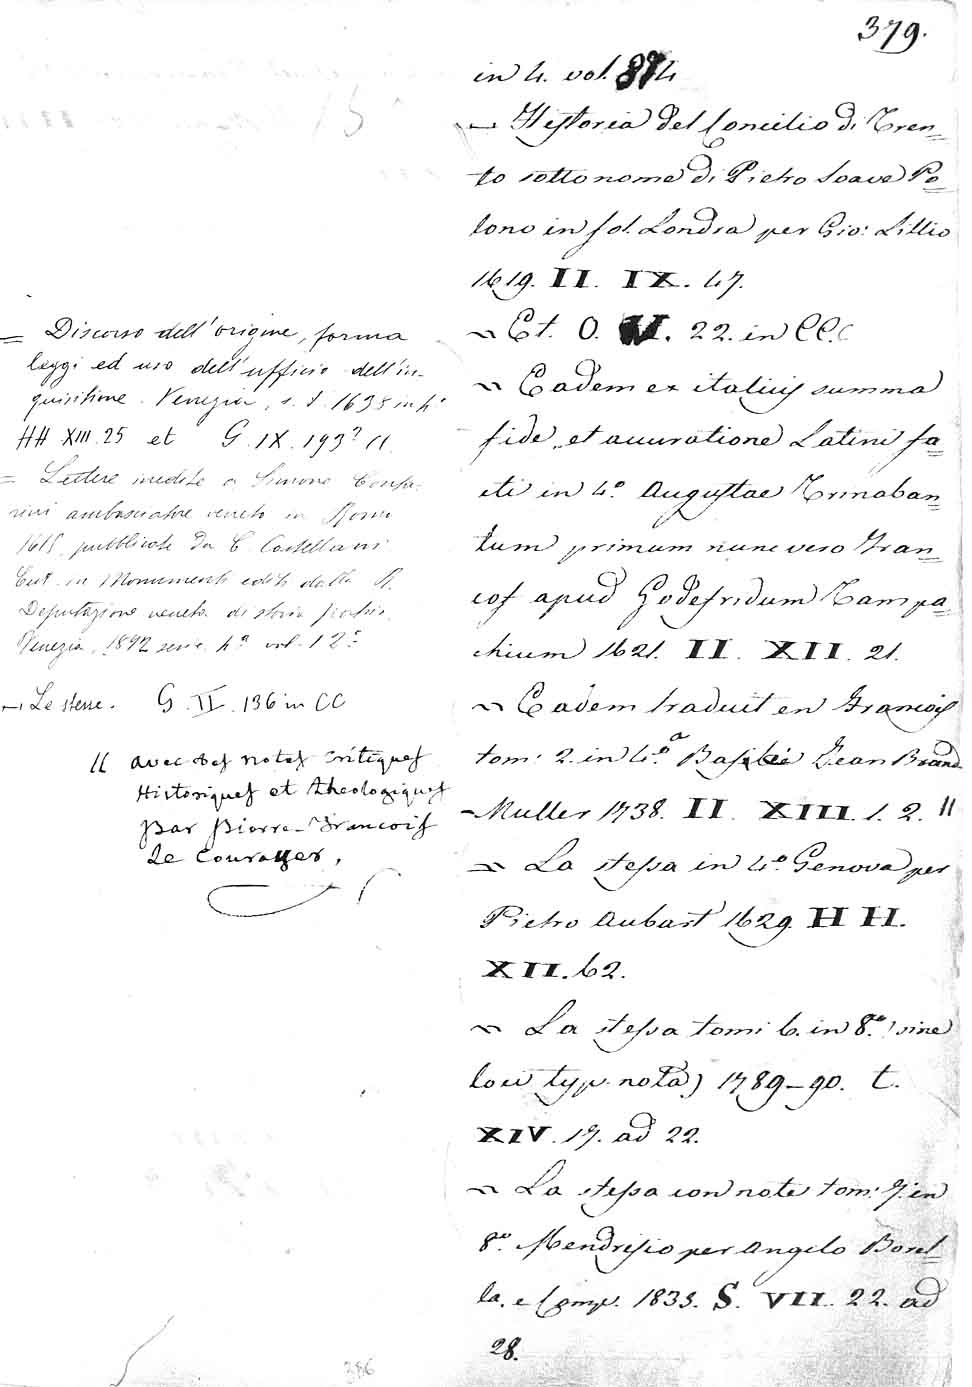 379.
in 4. vol. 4
— Historia del Concilio di Tren=
to sotto nome di Pietro Soave Po=
lono in fol. Londra per Gio: Billio
1619. II. IX. 47.
~ Et. O. V. 22. in CC.
~ Eadem ex italicis summa
fide, et accuratione Latini fa=
cti in 4.º Augustae Trinoban=
tum primum nunc vero Fran=
cof apud Godefridum Tampa=
chium 1621. II. XII. 21.
~ Eadem traduit en Francois
tom: 2. in 4.º a Basilée Jean Brand
-Muller 1738. II. XIII. 1. 2. 11
~ La stessa in 4.º Genova per
Pietro Aubert 1629. HH.
XII. 62.
~ La stessa tomi 6. in 8.º (sine
loci typ. nota) 1789-90. t.
XIV. 17. ad 22.
~ La stessa con note tom: 7. in
8.º Mendrisio per Angelo Borel=
la, e Comp. 1835. S. VII. 22. ad
28.
= Discorso dell'origine, forma
leggi ed uso dell'ufficio dell'in-
quisitione. Venezia, s. t. 1638 in 4º
HH XIII. 25 et G. IX. 193? 11.
= Lettere inedite a Simone Conta-
rini ambasciatore veneto in Roma
1615, pubblicate da C. Castellani
Est. in Monumenti editi dalla R.
Deputazione veneta di storia patria.
Venezia, 1892 serie 4ª vol. 12º
— Le stesse. G. II. 136 in CC
11 avec des notes critiques
Historiques et theologiques
par Pierre-Francois
Le Courayer,
386